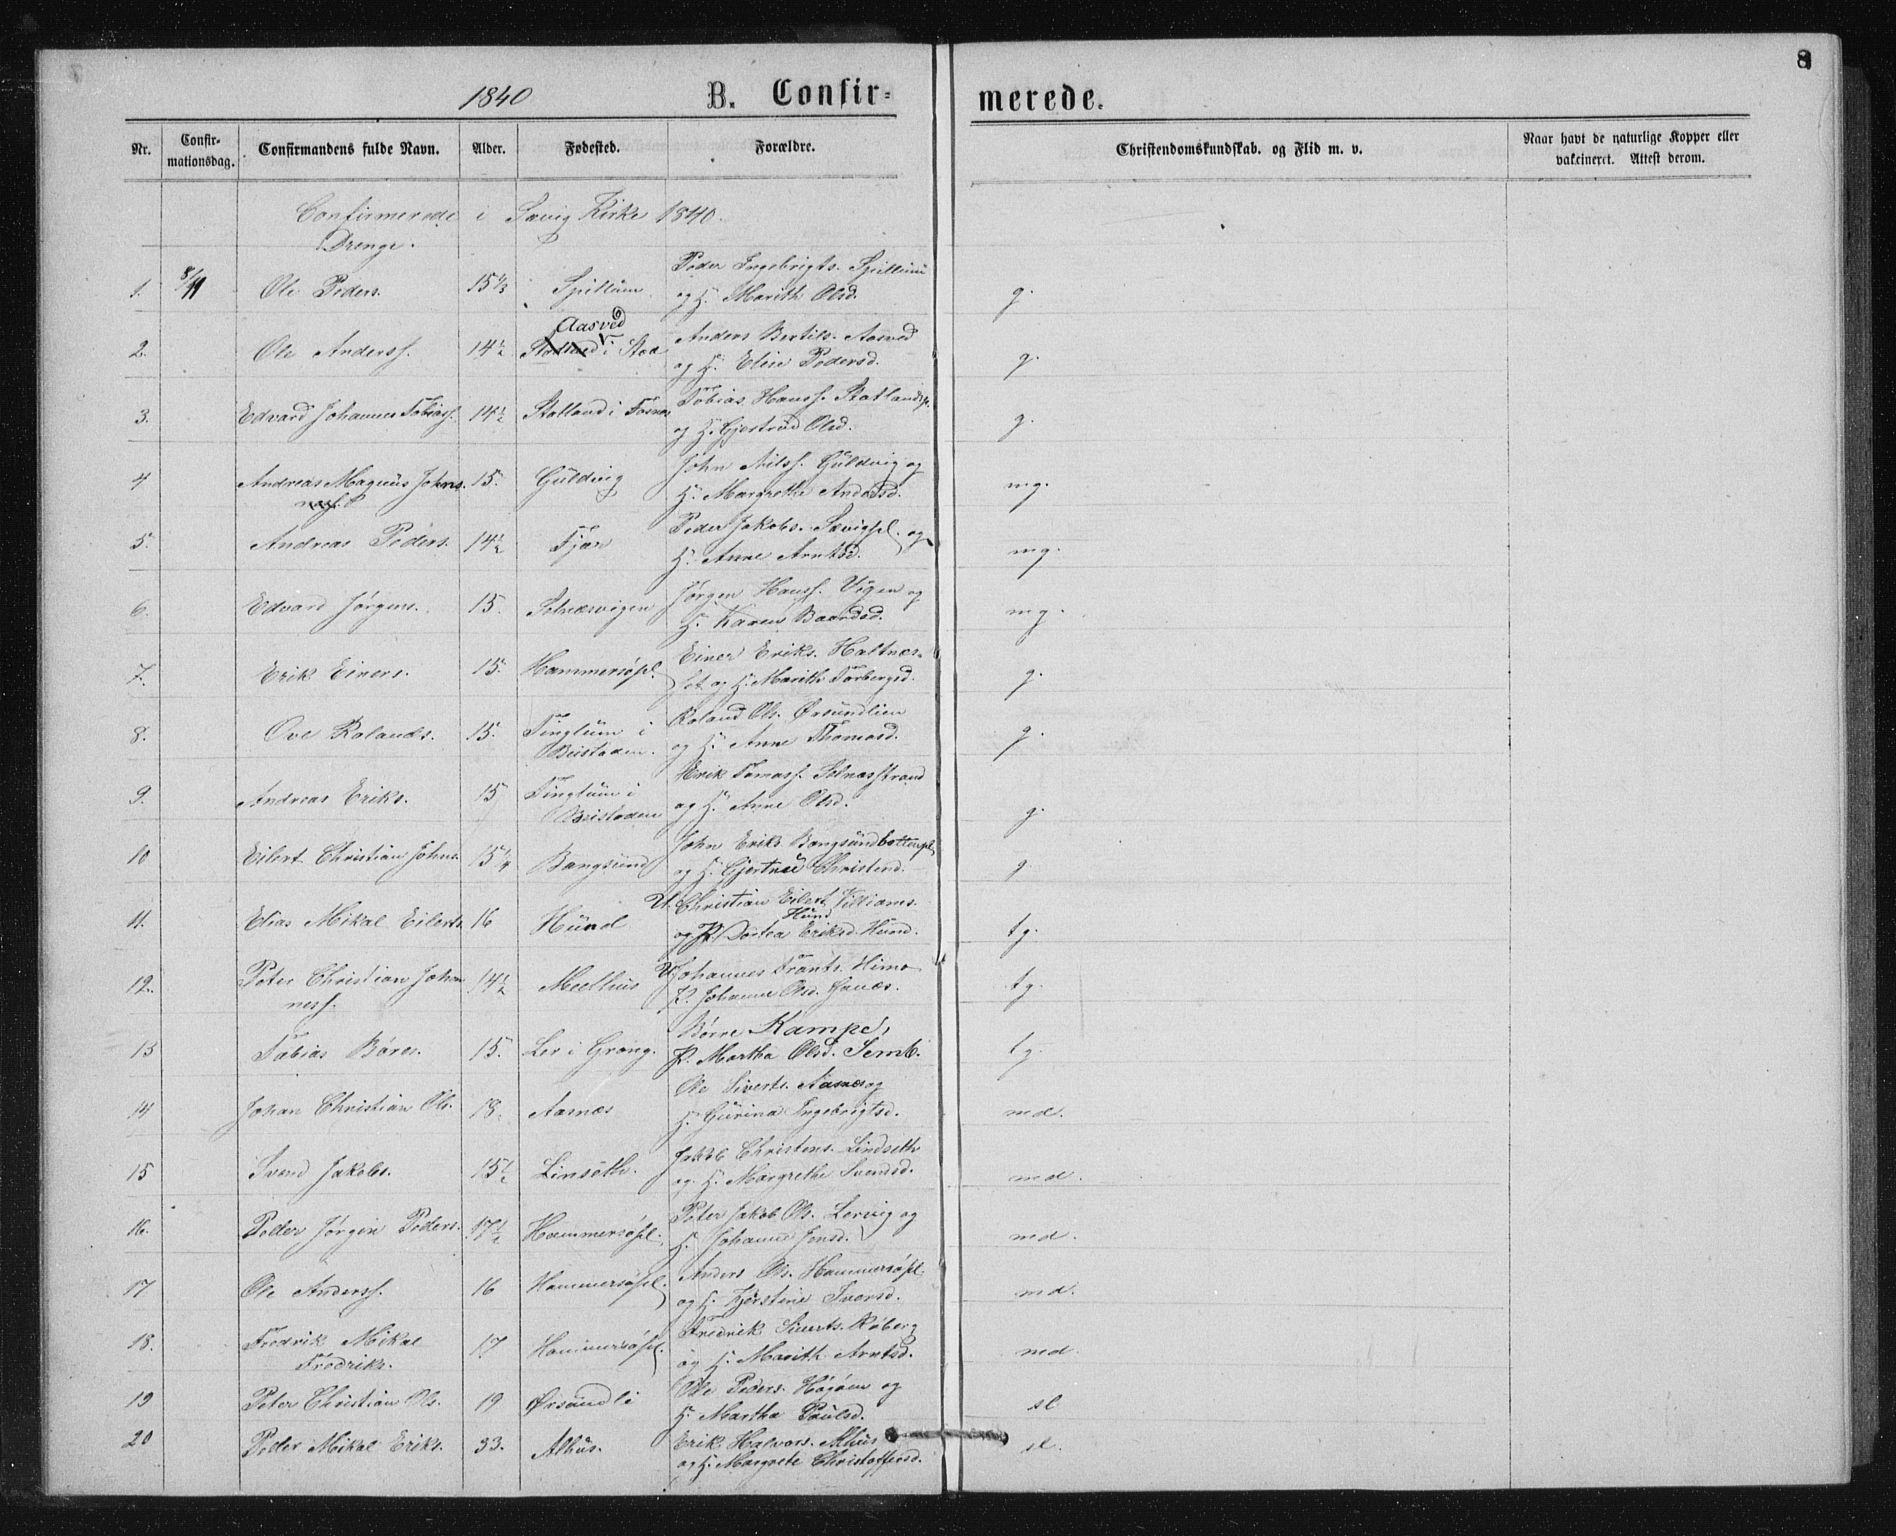 8
1840 B. Confir- merede.
Nr. Confir-mationsdag. Confirmandens fulde Navn. Alder. Fødested. Forældre. Christendomskundskab. og Flid m. v. Naar havt de naturlige Kopper eller vakcineret. Attest derom.
Confirmerede i Sævig Kirke 1840.
Drenge.
1. 8/11 Ole Peders. 15 1/3 Spillum Peder Ingebrigts. Spillum
og H. Marith Olsd. g.
Aasved
2. Ole Anderss. 14 1/2 i Stod Anders Bertils. Aasved
og H. Elise Pedersd. g.
3. Edvard Johannes Tobiass. 14 1/2 Statland i Fosnes Tobias Hanss. Statlandspl.
og H. Gjertrud Olsd. g.
4 Andreas Magnus Johns. 15. Guldvig John Nilss. Guldvig og
H. Margrethe Andersd. mg.
5. Andreas Peders. 14 1/2 Fjær Peder Jakobs. Sævigpl. og
H. Anne Arntsd. mg.
6. Edvard Jørgens. 15. Selnæsvigen Jørgen Hanss. Vigen og
H. Karen Baardsd. mg.
7. Erik Einers. 15. Hammersøpl. Einer Eriks. Haltnes-
og H. Marith Torbergsd. g.
8. Ove Rolands. 15. Tinglum i Roland Ols. Ørsundlien
Beistaden. og H. Anne Thomasd. g.
9. Andreas Eriks. 15 Tinglum i Erik Tomass. Selnæsstrand
Beistaden og H. Anne Olsd. g.
10 Eilert Christian Johns. 15 1/4 Bangsund John Eriks Bangsundbottenpl
og H. Gjertrue Christend. g.
11. Elias Mikal Eilerts. 16 Hund U. Christian Eilert Villiams.
Hund
og P. Dortea Eriksd. Hund. tg.
12. Peter Christian Johan 14 1/2 Meelhus U. Johannes Frants. Himo
ness. P. Johanna Olsd. tg.
13 Tobias Børes. 15. Ler i Grong. Børre Kampe,
P. Martha Olsd. Semb. tg.
14 Johan Christian Ols. 18. Aarnæs Ole Siverts. Aarnæs og
H. Gurina Ingebrigtsd. md.
15 Svend Jakobs. 15 1/2 Linseth. Jakob Christens. Lindseth
og H. Margrethe Svendsd. md.
16. Peder Jørgen Peders. 17 1/2 Hammersøpl. Peter Jakob Ols. Lervig og
H. Johanna Jensd. md.
17 Ole Anderss. 16 Hammersøpl. Anders Ols. Hammersøpl.
og H. Kjerstine Iversd. md.
18. Fredrik Mikal 17 Hammersøpl. Fredrik Siverts. Røberg
Fredriks. og H. Marith Arntsd. md.
19 Peter Christian Ols. 19 Ørsundli Ole Peders. Høgåem og
H. Martha Paulsd. sl
20 Peder Mikal Eriks. 33. Alhus. Erik Halvors. Alhus
og H. Margrete Christoffersd. sl.